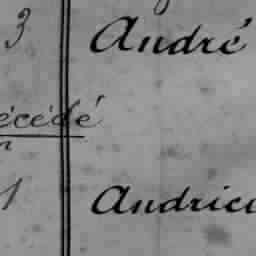 3 André
écédé
1